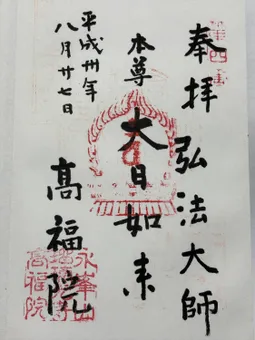 奉拝 弘法大師
本尊 大日如来
高福院
平成卅年
八月廿七日
永峯山
高福院